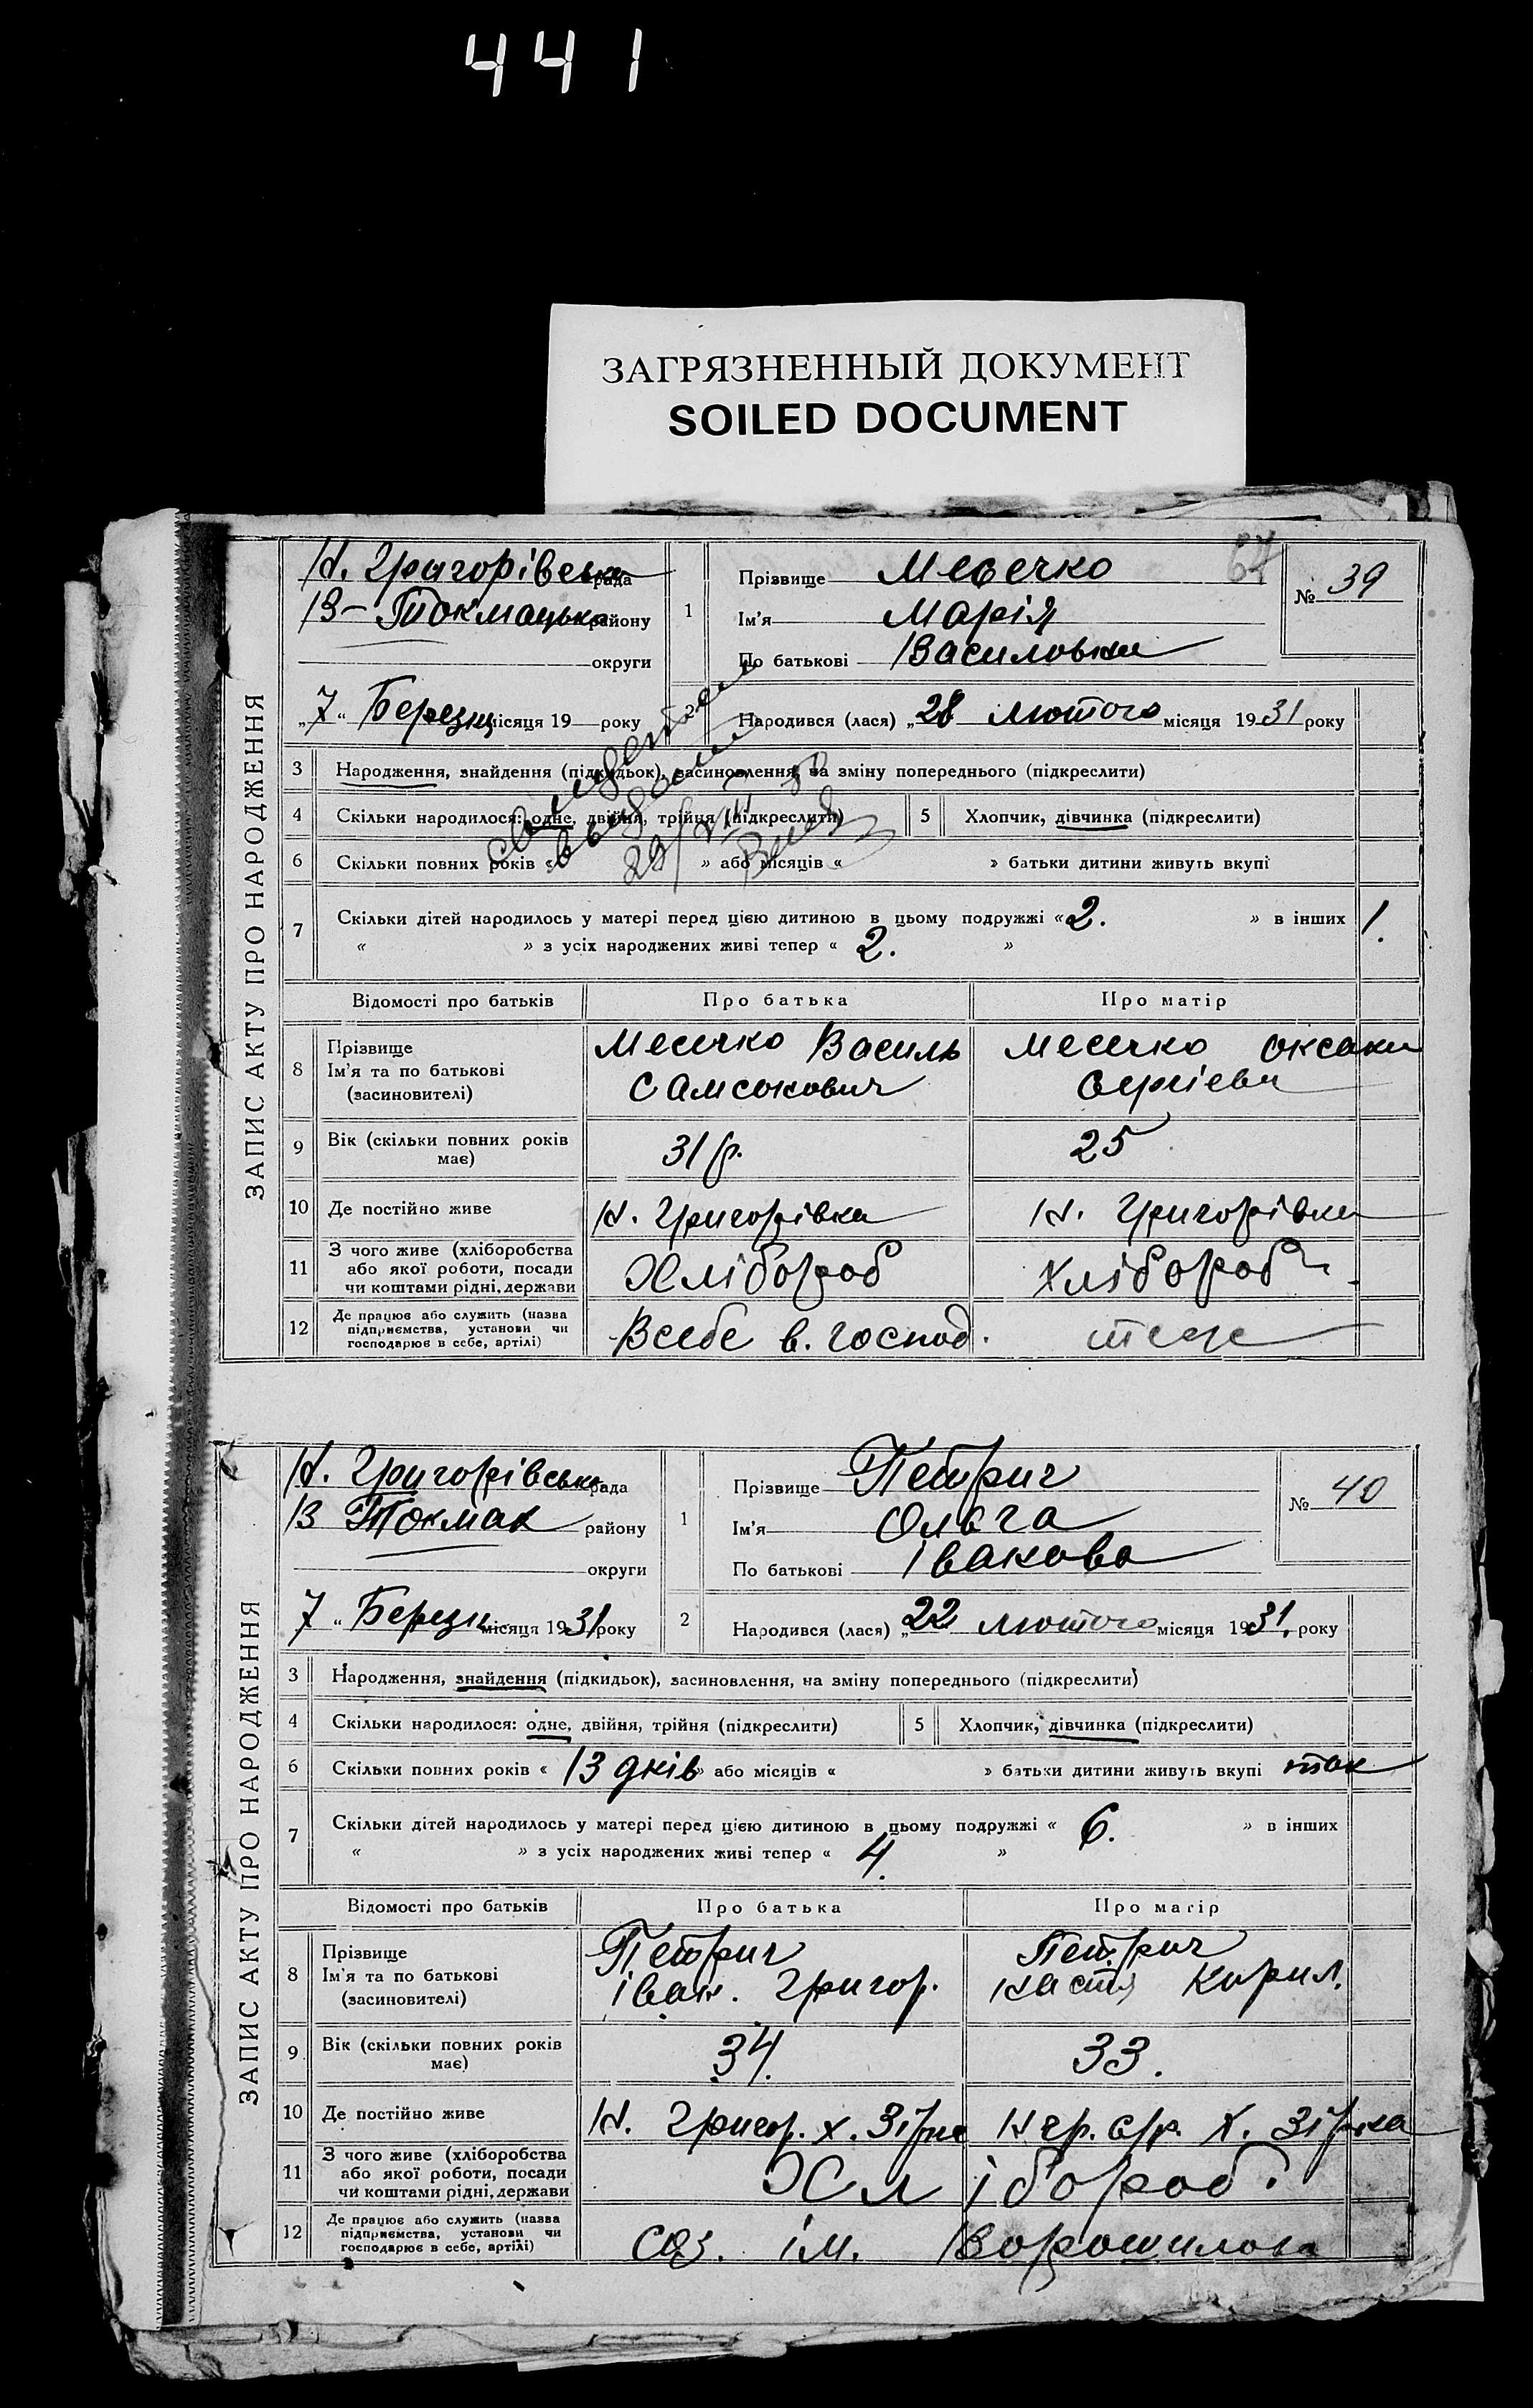 441
ЗАГРЯЗНЕННЫЙ ДОКУМЕНТ
SOILED DOCUMENT
ЗАПИС АКТУ ПРО НАРОДЖЕННЯ
Н. Григорівська рада
В-Токмацька району
округи
„7“ Березня місяця 19 року
1
Прізвище Месечко
Ім'я Марія
По батькові Василовни
67
№ 39
2 Народився (лася) „28 лютого місяця 1931 року
3 Народження, знайдення (підкидьок), засиновлення, на зміну попереднього (підкреслити)
4 Скільки народилося: одне, двійня, трійня (підкреслити) 5 Хлопчик, дівчинка (підкреслити)
6 Скільки повних років « » або місяців « » батьки дитини живуть вкупі
7 Скільки дітей народилось у матері перед цією дитиною в цьому подружжі «2. » в інших 1.
« » з усіх народжених живі тепер « 2. »
Відомості про батьків Про батька Про матір
8 Прізвище
Ім'я та по батькові
(засиновителі)
Месечко Василь
Самсонович
Месечко Оксана
Сергіевн
9 Вік (скільки повних років
має)
31 р.
25
10 Де постійно живе Н. Григорівка Н. Григорівка
11 З чого живе (хліборобства
або якої роботи, посади
чи коштами рідні, держави
Хлібороб
Хлібороб
12 Де працює або служить (назва
підприємства, установи чи
господарює в себе, артілі)
Всебе в. господ.
теж
ЗАПИС АКТУ ПРО НАРОДЖЕННЯ
Н. Григорівська рада
В Токмак району
округи
7 “ Березн місяця 1931 року
1
Прізвище Петрич
Ім'я Ольга
По батькові Іванова
№ 40
2 Народився (лася) „22 лютого місяця 1931. року
3 Народження, знайдення (підкидьок), засиновлення, на зміну попереднього (підкреслити)
4 Скільки народилося: одне, двійня, трійня (підкреслити) 5 Хлопчик, дівчинка (підкреслити)
6 Скільки повних років « 13 днів » або місяців « » батьки дитини живуть вкупі так
7 Скільки дітей народилось у матері перед цією дитиною в цьому подружжі « 6. » в інших
« » з усіх народжених живі тепер « 4. »
Відомості про батьків Про батька Про матір
8 Прізвище
Ім'я та по батькові
(засиновителі)
Петрич
Іван. Григор.
Петрич
Настя Кирил.
9 Вік (скільки повних років
має)
34.
33.
10 Де постійно живе Н. Григор. х. Зірка Х. Зірка
11 З чого живе (хліборобства
або якої роботи, посади
чи коштами рідні, держави
Хлібороб.
12 Де працює або служить (назва
підприємства, установи чи
господарює в себе, артілі)
соз. ім. Ворошилова